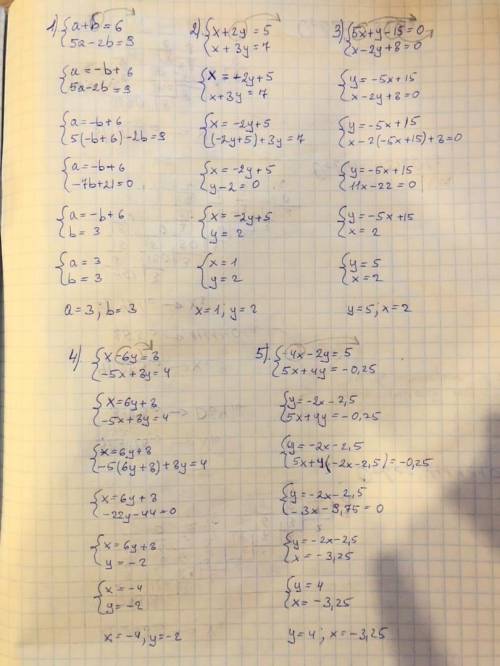 1) { a+b=6
5a-2b=9
{ a=-b+6
5a-2b=9
{ a=-b+6
5(-b+6)-2b=9
{ a=-b+6
-7b+21=0
{ a=-b+6
b=3
{ a=3
b=3
a=3; b=3
2) { x+2y=5
x+3y=7
{ x=-2y+5
x+3y=7
{ x=-2y+5
(-2y+5)+3y=7
{ x=-2y+5
y-2=0
{ x=-2y+5
y=2
{ x=1
y=2
x=1; y=2
3) { 5x+y-15=0
x-2y+8=0
{ y=-5x+15
x-2y+8=0
{ y=-5x+15
x-2(-5x+15)+8=0
{ y=-5x+15
11x-22=0
{ y=-5x+15
x=2
{ y=5
x=2
y=5; x=2
4) { x-6y=8
-5x+8y=4
{ x=6y+8
-5x+8y=4
{ x=6y+8
-5(6y+8)+8y=4
{ x=6y+8
-22y-44=0
{ x=6y+8
y=-2
{ x=-4
y=-2
x=-4; y=-2
5) { -4x-2y=5
5x+4y=-0,25
{ y=-2x-2,5
5x+4y=-0,25
{ y=-2x-2,5
5x+4(-2x-2,5)=-0,25
{ y=-2x-2,5
-3x-9,75=0
{ y=-2x-2,5
x=-3,25
{ y=4
x=-3,25
y=4; x=-3,25